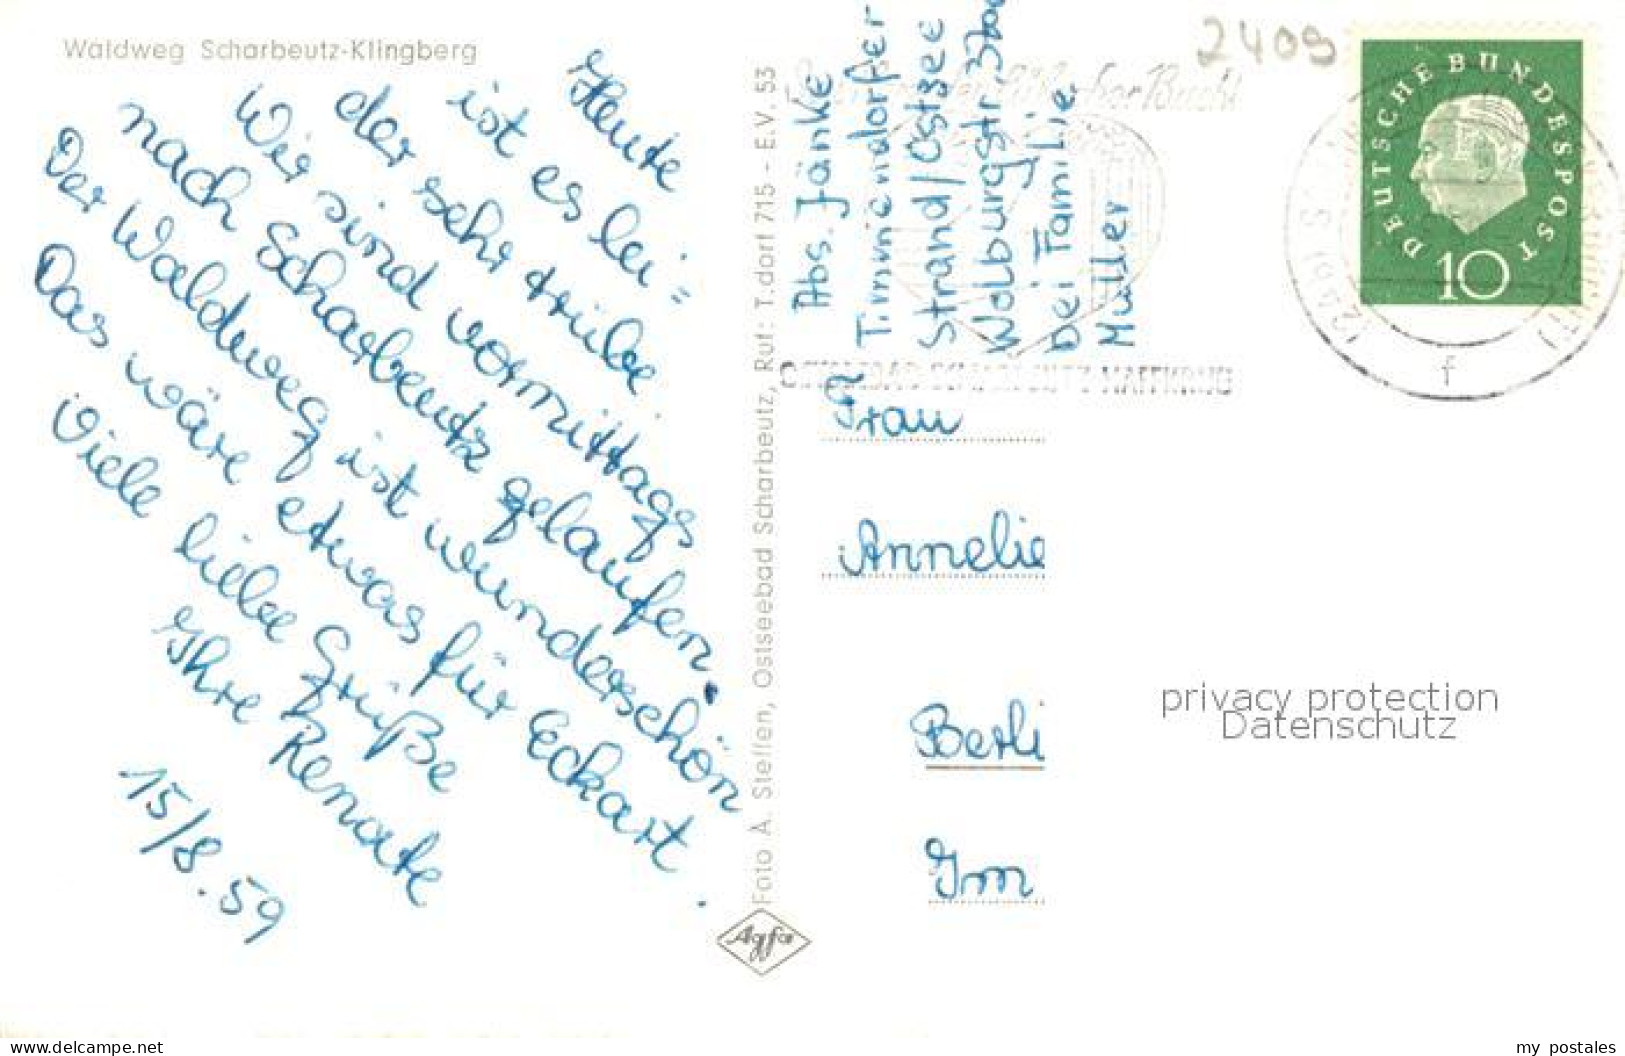 Waldweg Scharbeutz-Klingberg
Heute
ist es lei=
der sehr trübe.
Wir sind vormittags
nach Scharbeutz gelaufen.
Der Waldweg ist wunderschön
Das wäre etwas für Eckart.
Viele liebe Grüße
Ihre Renate
15/8.59
Foto A. Steffen, Ostseebad Scharbeutz, Ruf: T.dorf 715 - E.V. 53
Agfa
Abs. Jänke
Timmendorfer
Strand/Ostsee
Wolburgstr.
bei Familie
Müller
2409
DEUTSCHE BUNDESPOST
10
f
Frau
Annelie
Berli
Im
privacy protection
Datenschutz
www.delcampe.net
my_postales